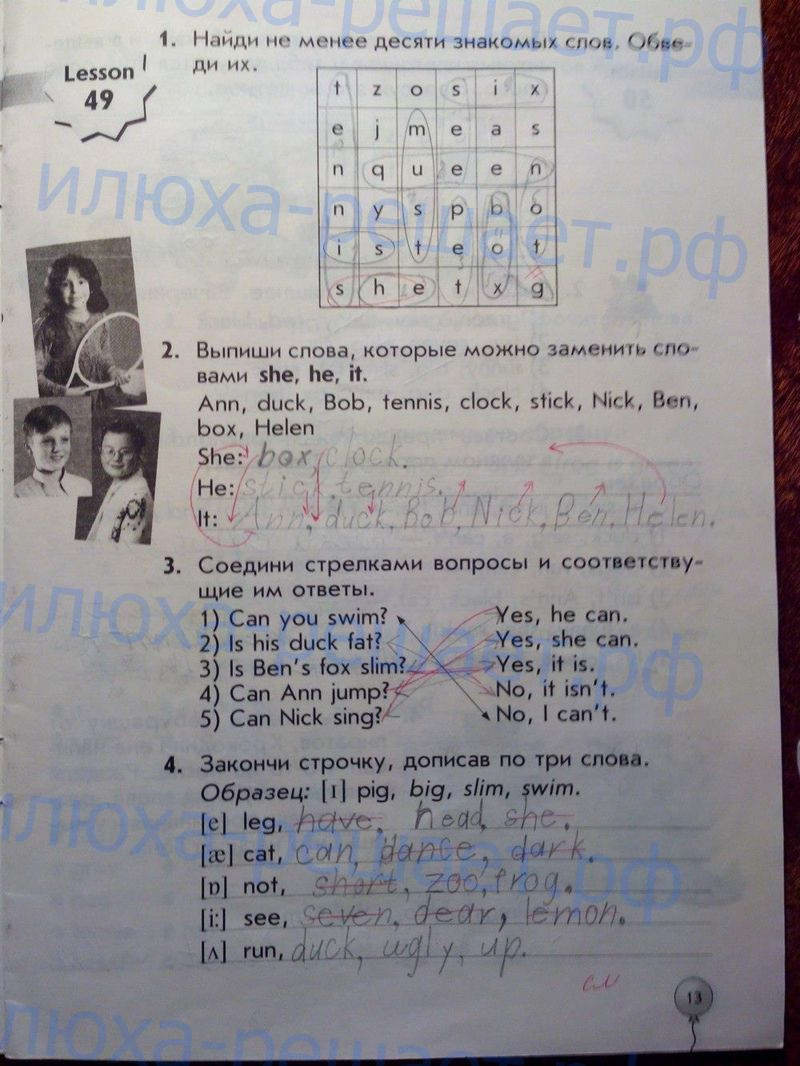 илюха-решает.рф
1. Найди не менее десяти знакомых слов. Обве-
ди их.
Lesson
49
t z o s i x
e j m e a s
n q u e e n
n y s p b o
i s t e o t
s h e t x g
илюха-решает.рф
2. Выпиши слова, которые можно заменить сло-
вами she, he, it.
Ann, duck, Bob, tennis, clock, stick, Nick, Ben,
box, Helen
She: box, clock.
He: stick, tennis.
It: Ann, duck, Bob, Nick, Ben, Helen.
3. Соедини стрелками вопросы и соответству-
щие им ответы.
1) Can you swim? Yes, he can.
2) Is his duck fat? Yes, she can.
3) Is Ben's fox slim? Yes, it is.
4) Can Ann jump? No, it isn't.
5) Can Nick sing? No, I can't.
илюха-решает.рф
4. Закончи строчку, дописав по три слова.
Образец: [ɪ] pig, big, slim, swim.
[e] leg, have, head, she.
[æ] cat, can, dance, dark.
[ɒ] not, short, zoo, frog.
[i:] see, seven, dear, lemon.
[ʌ] run, duck, ugly, up.
илюха-решает.рф
см
13
илюха-решает.рф